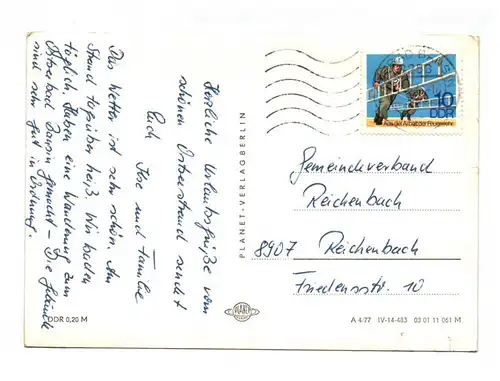 Herzliche Urlaubsgrüße vom
schönen Ostseestrand sendet
Euch
und Familie
Das Wetter ist sehr schön. Am
Strand tagsüber heiß. Wir baden
täglich. Haben eine Wanderung zum
Ostseebad Bansin gemacht – Die
sind sehr gut in Ordnung.
DDR 0,20 M
PLANET-VERLAG BERLIN
PLANET
10
DDR
Aus der Arbeit der Feuerwehr
Gemeindeverband
Reichenbach
8907 Reichenbach
Friedensstr. 10
A 4/77 IV-14-483 03 01 11 061 M